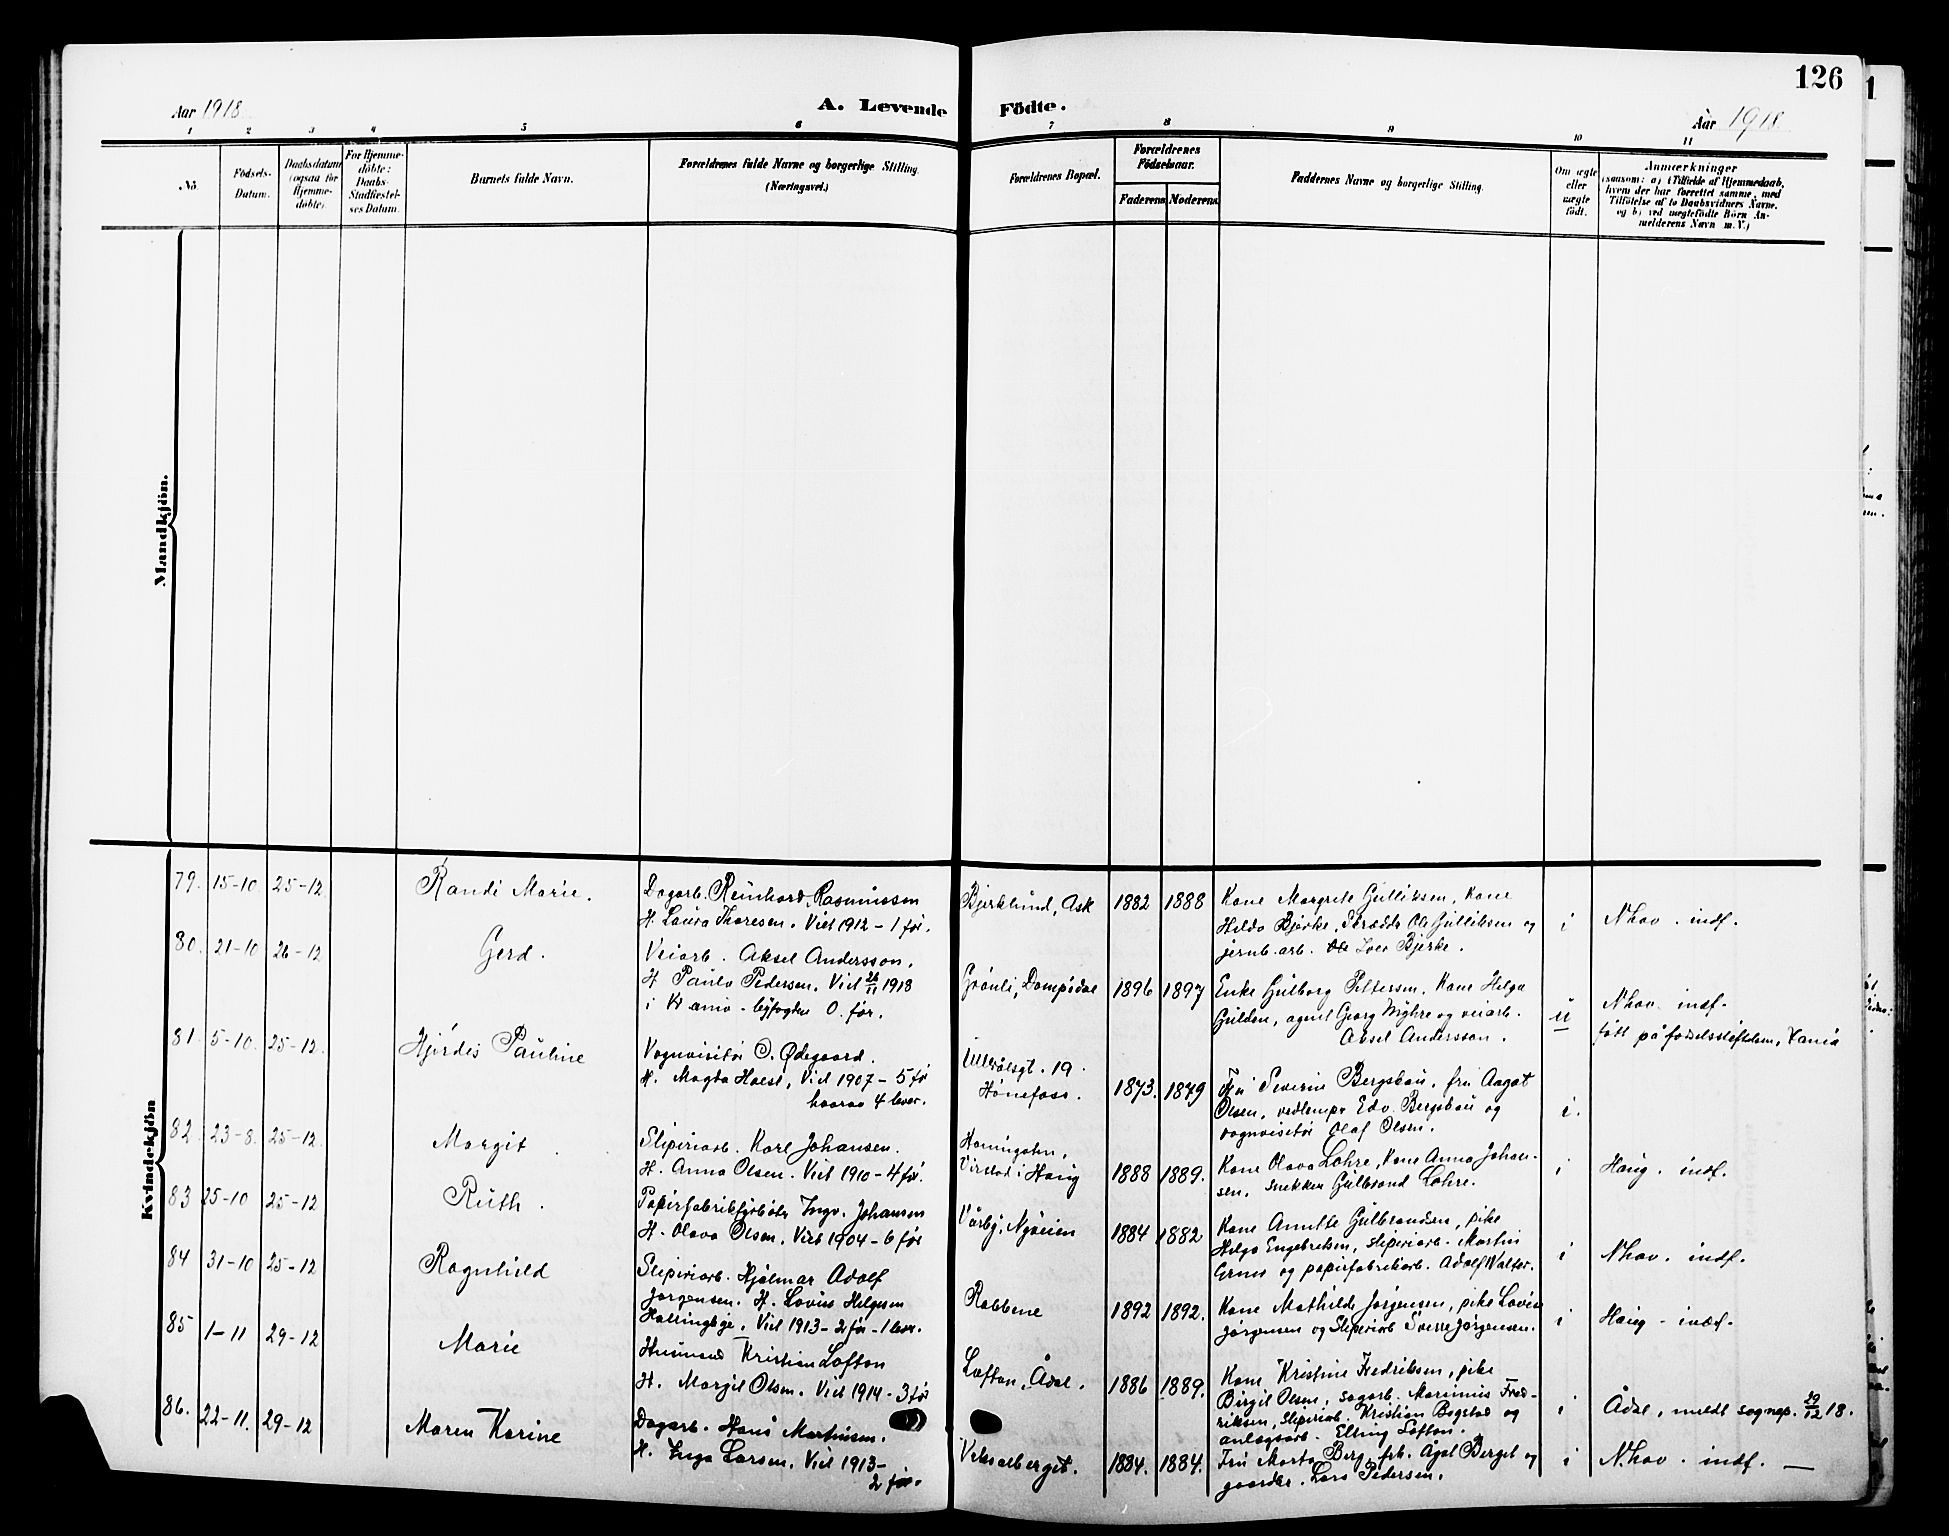 126
Aar 1918
A. Levende Födte.
Aar 1918
1 2 3 4 5 6 7 8 9 10 11
No.
Födsels-Datum.
Daabsdatum (ogsaa for Hjemme-døbte).
For Hjemme-døbte: Daabs-Stadfæstel-ses Datum.
Barnets fulde Navn.
Forældrenes fulde Navne og borgerlige Stilling. (Næringsvei.)
Forældrenes Bopæl.
Forældrenes Födselsaar.
Faderens
Moderens
Faddernes Navne og borgerlige Stilling.
Om ægte eller uægte födt.
Anmærkninger
(saasom: a) i Tilfælde af Hjemmedaab,
hvem der har forrettet samme, med
Tilföielse af to Daabsvidners Navne.
og b) ved uægtefödte Börn An-
melderens Navn m. V.)
Mandkjön.
Kvindekjön
79. 15-10 25-12 Randi Marie.
Dagarb. Reinhard Rasmussen
H. Laura Thoresen. Viet 1912 - 1 før.
Bjerklund, Ask 1882 1888
Kone Margrete Gulliksen, Kone
Hilda Bjerke, Skrædder Ole Gulliksen og
jernb. arb. Ole Iver Bjerke.
i
N.hov. indf.
80. 21-10 26-12 Gerd.
Veiarb. Aksel Andersson.
H. Paula Pedersen. Viet 26/11 1918
i Kr.ania - byfogden 0. før.
Grönli, Dompidal 1896 1897
Enke Gulborg Pettersen, Kone Helga
Gulden, agent Georg Myhre og veiarb.
Aksel Andersson.
u
N.hov. indf.
født på fødselsstiftelsen, Xania
81. 5-10. 25-12. Hjördis Pauline
Vognvisitør O. Ødegaard.
H. Magda Hoest, Viet 1907 - 5 før
hvorav 4 lever.
Ullerålsgt. 19.
Hönefoss.
1873. 1879
Fru Severine Bergsbau, fru Aagot
Olsen, vedlempr Edv. Bergsbau og
vognvisitør Olaf Olsen.
i.
82. 23-8. 25-12. Margit.
Sliperiarb. Karl Johansen.
H. Anna Olsen. Viet 1910 - 4 før.
Virstad i Haug 1888 1889.
Kone Olava Lohre, Kone Anna Johan-
sen, snekker Gulbrand Lohre.
i
Haug. indf.
83 25-10 25-12 Ruth.
Papirfabrikfyrböter Ingv. Johansen
H. Olava Olsen. Viet 1904 - 6 før
Vårby, Nyveien 1884 1882
Kone Anette Gulbrandsen, pike
Helga Engebretsen, sliperiarb. Martin
Grun og papirfabrikarb. Adolf Walter.
i
N.hov. indf.
84 31-10 25-12 Ragnhild
Sliperiarb. Hjalmar Adolf
Jørgensen. H. Lovise Helgesen
Hallingbye. Viet 1913 - 2 før - 1 lever.
Robbene 1892 1892.
Kone Mathilde Jørgensen, pike Lovise
Jørgensen og Sliperiarb Sverre Jørgensen.
i
Haug - indf.
85 1-11 29-12 Marie
Husmand Kristian Lofton
H. Margit Olsen. Viet 1914 - 3 før
Lofton, Ådal. 1886 1889.
Kone Kristine Fredriksen, pike
Birgit Olsen, sagarb. Marinius Fred-
riksen, sliperiarb. Kristian Bogstad og
anlægsarb. Elling Lofton.
i
Ådal, meldt sognep. 29/12 18.
86. 22-11. 29-12 Maren Karine
Dagarb. Hans Martinsen.
H. Inga Larsen. Viet 1913 -
2 før.
Veksalberget. 1884. 1884.
Fru Marta Berg, frk. Ågot Berget og
gaardbr. Lars Pedersen.
i
N.hov. indf. —